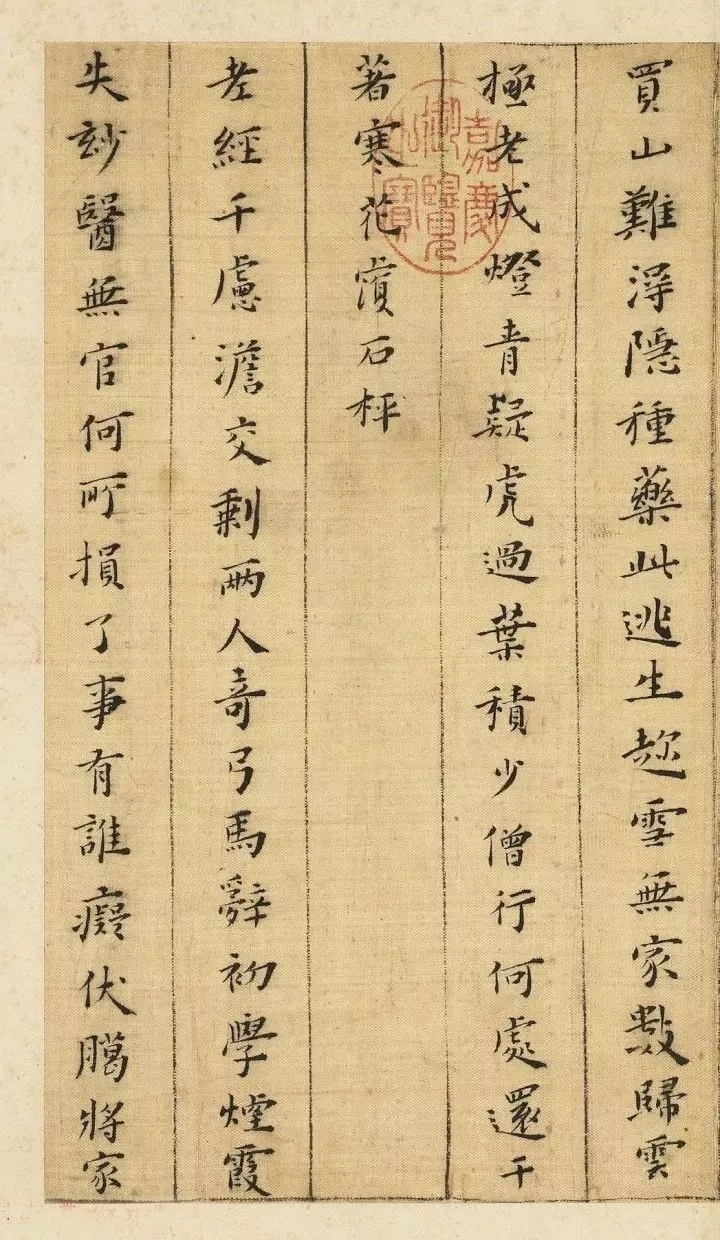 買山難得隱種藥此逃生趂雪無家數歸雲
極老成燈青疑虎過葉積少僧行何處還干
著寒花瀆石枰
老經千慮澹交剩兩人奇弓馬辭初學煙霞
失玅醫無官何所損了事有誰癡伏臈將家
嘉慶御覽之寶